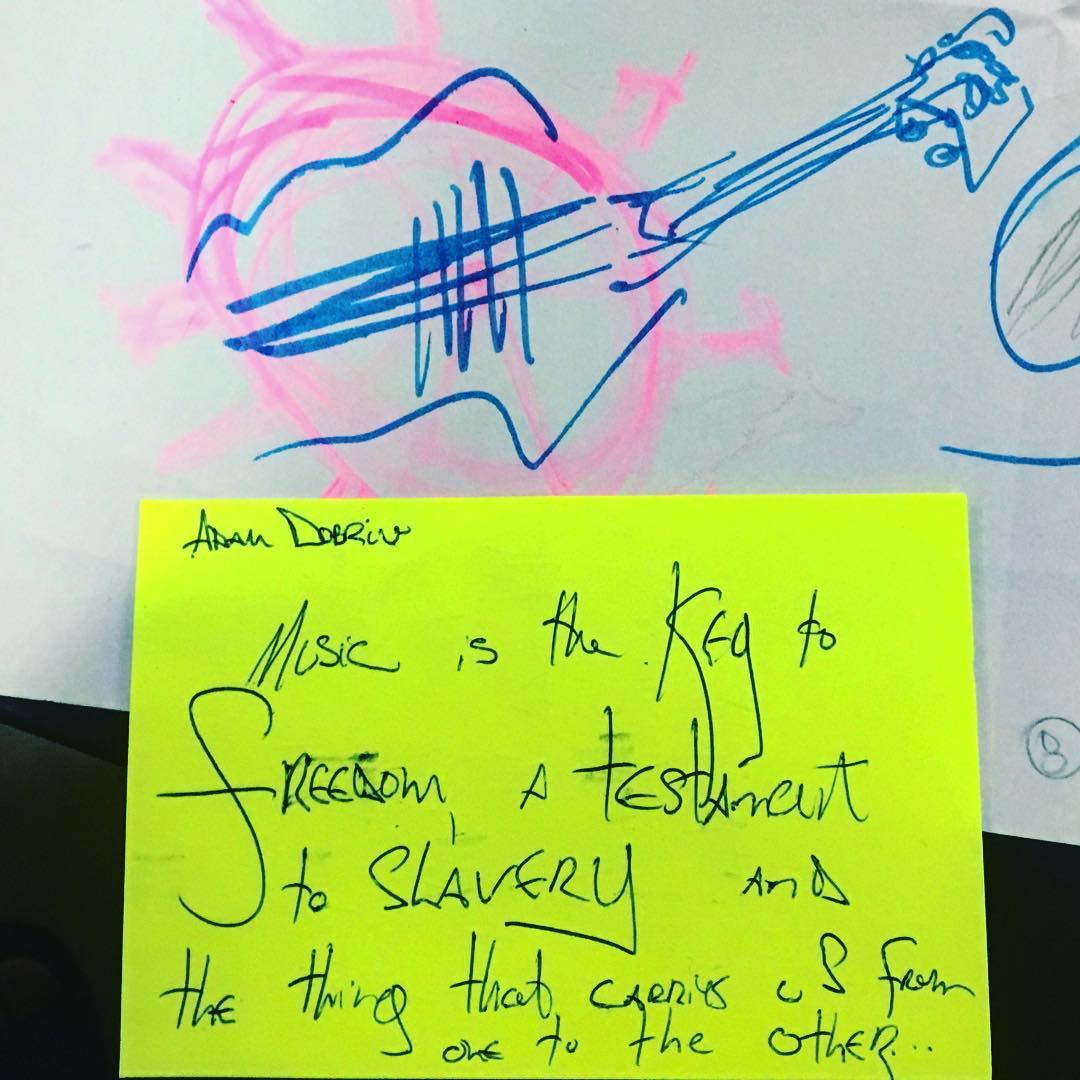 Adam Dobrin
Music is the Key to
Freedom, a testament
to SLAVERY and
the thing that carries us from
one to the other...
B